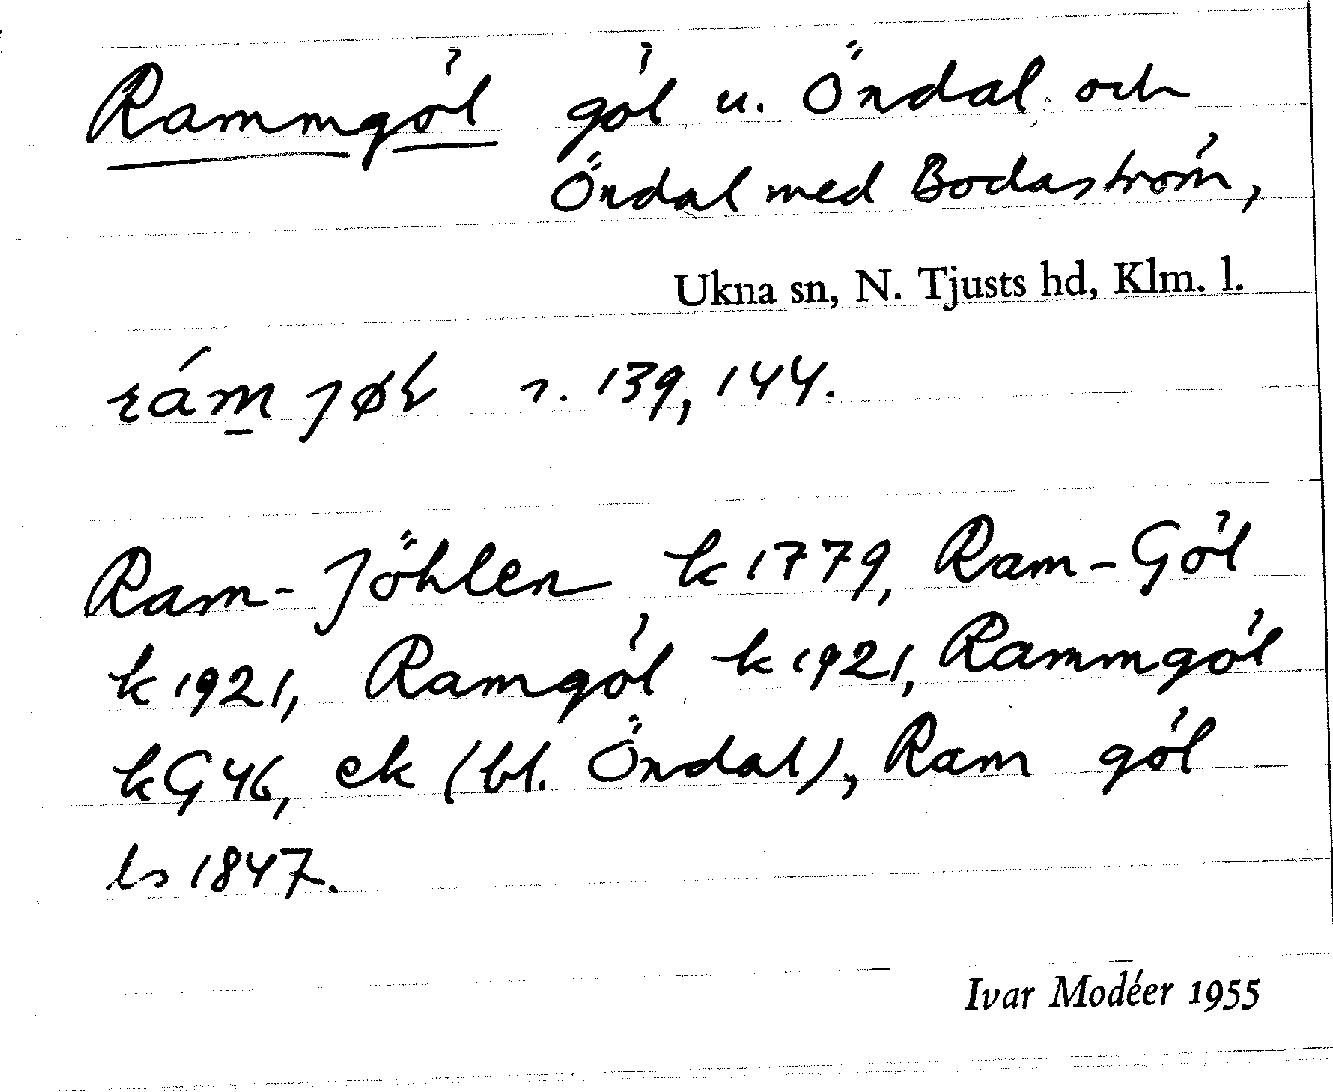 Rammgöl göl u. Öndal och
Öndal med Bodaström,
Ukna sn, N. Tjusts hd, Klm. l.
s. 139, 144.
Ram-Jöhlen k 1779, Ram-Göl
k 1921, Ramgöl k 1921, Rammgöl
kG 46, ek (bl. Öndal), Ram göl
ls 1847.
Ivar Modéer 1955